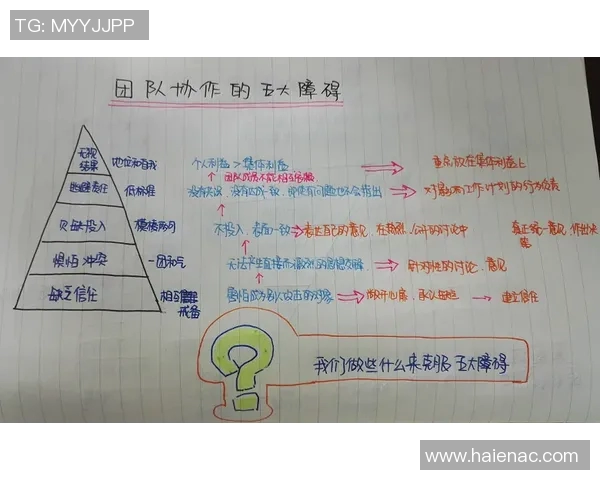 TG: MYYJJPP
团队协作的五大障碍
无视结果 地位和自我 个人利益 > 集体利益 重点放在集体利益上
团队成员不能相互
逃避责任 低标准 没有达成一致，即使有问题也不会指出 对影响工作计划的行为负责
欠缺投入 模棱两可 不投入，表面一致 表达自己的意见，在激烈、公开的讨论中 真正统一意见，作出决定
惧怕冲突 一团和气 无法产生直接而激烈的思想交锋 针对性的讨论、意见
缺乏信任 相互戒备 害怕成为别人攻击的对象 敞开心扉，承认 建立信任
我们做些什么来克服五大障碍
www.haienac.com